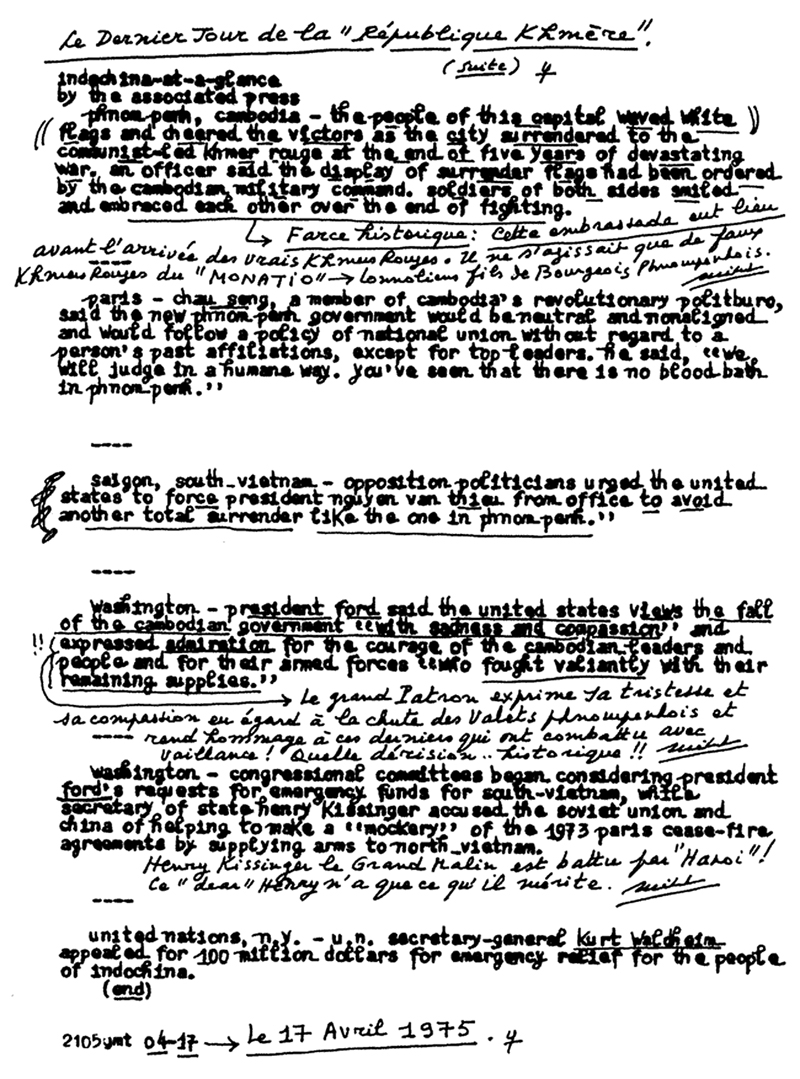 Le Dernier Jour de la "République Khmère".
(suite)
indochina-at-a-glance
by the associated press
phnom-penh, cambodia - the-people of this capital waved white
flags and cheered the victors as the city surrendered to the
communist-led khmer rouge at the end of five years of devastating
war. an officer said the display of surrender flags had been ordered
by the cambodian military command. soldiers of both sides smiled
and embraced each other over the end of fighting.
↳ Farce historique: Cette embrassade eut lieu
avant l'arrivée des vrais Khmers Rouges. Il ne s'agissait que de faux
Khmers Rouges du "MONATIO" → lonnoliens fils de Bourgeois Phnoumpenhois.
----
paris - chau seng, a member of cambodia's revolutionary politburo,
said the new phnom-penh government would be neutral and nonaligned
and would follow a policy of national union without regard to a
person's past affiliations, except for top-leaders. he said, "we
will judge in a humane way. you've seen that there is no blood-bath
in phnom-penh."
----
saigon, south-vietnam - opposition politicians urged the united
states to force president nguyen van thieu from office to avoid
another total surrender like the one in phnom-penh."
----
washington - president ford said the united states views the fall
of the cambodian government "with sadness and compassion" and
!! expressed admiration for the courage of the cambodian-leaders and
people and for their armed forces "who fought valiantly with their
remaining supplies."
→ Le grand Patron exprime sa tristesse et
sa compassion eu égard à la chute des Valets phnoumpenhois et
---- rend hommage à ces derniers qui ont combattu avec
vaillance! Quelle dérision.. historique!!
washington - congressional committees began considering president
ford's requests for emergency funds for south-vietnam, while
secretary of state henry kissinger accused the soviet union and
china of helping to make a "mockery" of the 1973 paris cease-fire
agreements by supplying arms to north-vietnam.
Henry Kissinger le Grand Malin est battu par "Hanoi"!
Ce "dear" Henry n'a que ce qu'il mérite.
----
united nations, n.y. - u.n. secretary-general kurt waldheim
appealed for 100 million dollars for emergency relief for the people
of indochina.
(end)
2105gmt 04-17 → Le 17 Avril 1975.